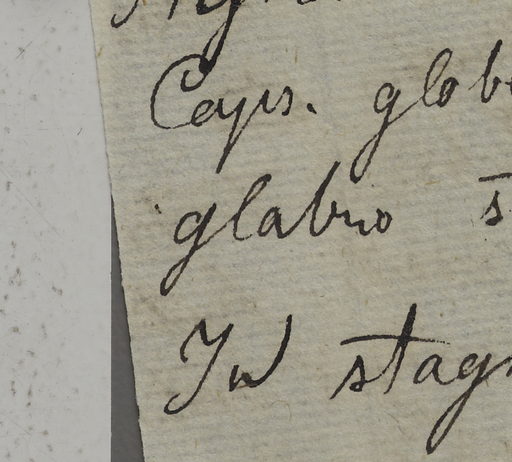 Caps. glob
glabrio s
In stag